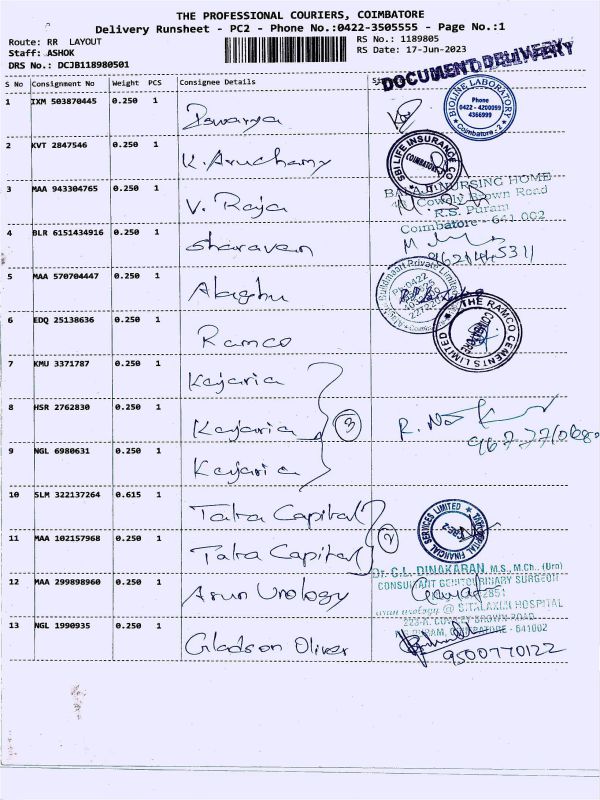 THE PROFESSIONAL COURIERS, COIMBATORE
Delivery Runsheet - PC2 - Phone No.:0422-3505555 - Page No.:1
Route: RR LAYOUT
RS No.: 1189805
Staff: ASHOK
RS Date: 17-Jun-2023
DRS No.: DCJB118980501
DOCUMENT DELIVERY
S No Consignment No Weight PCS Consignee Details
1 IXM 503870445 0.250 1 Iswarya
BIOLINE LABORATORY
Phone
0422 - 4200099
4366999
Coimbatore - 2
2 KVT 2847546 0.250 1 K. Aruchamy
SBI LIFE INSURANCE CO
COIMBATORE
3 MAA 943304765 0.250 1 V. Raja
NURSING HOME
Cowly Brown Road
R.S. Puram
Coimbatore - 641 002
4 BLR 6151434916 0.250 1 Sharavan
5 MAA 570704447 0.250 1 Alaghu
Buildmaart Private Limited
6 EDQ 25138636 0.250 1 Ramco
THE RAMCO CEMENTS LIMITED
7 KMU 3371787 0.250 1 Kajaria
8 HSR 2762830 0.250 1 Kajaria 3
9 NGL 6980631 0.250 1 Kajaria
10 SLM 322137264 0.615 1 Tata Capital
TATA CAPITAL FINANCIAL SERVICES LIMITED
11 MAA 102157968 0.250 1 Tata Capital 2
Dr. C.L. DINAKARAN, M.S., M.Ch., (Uro)
CONSULTANT GENITOURINARY SURGEON
12 MAA 299898960 0.250 1 Arun Urology
arun urology @ SITALAXMI HOSPITAL
COWLEY BROWN ROAD
COIMBATORE - 641002
13 NGL 1990935 0.250 1 Gladson Oliver
9500770122